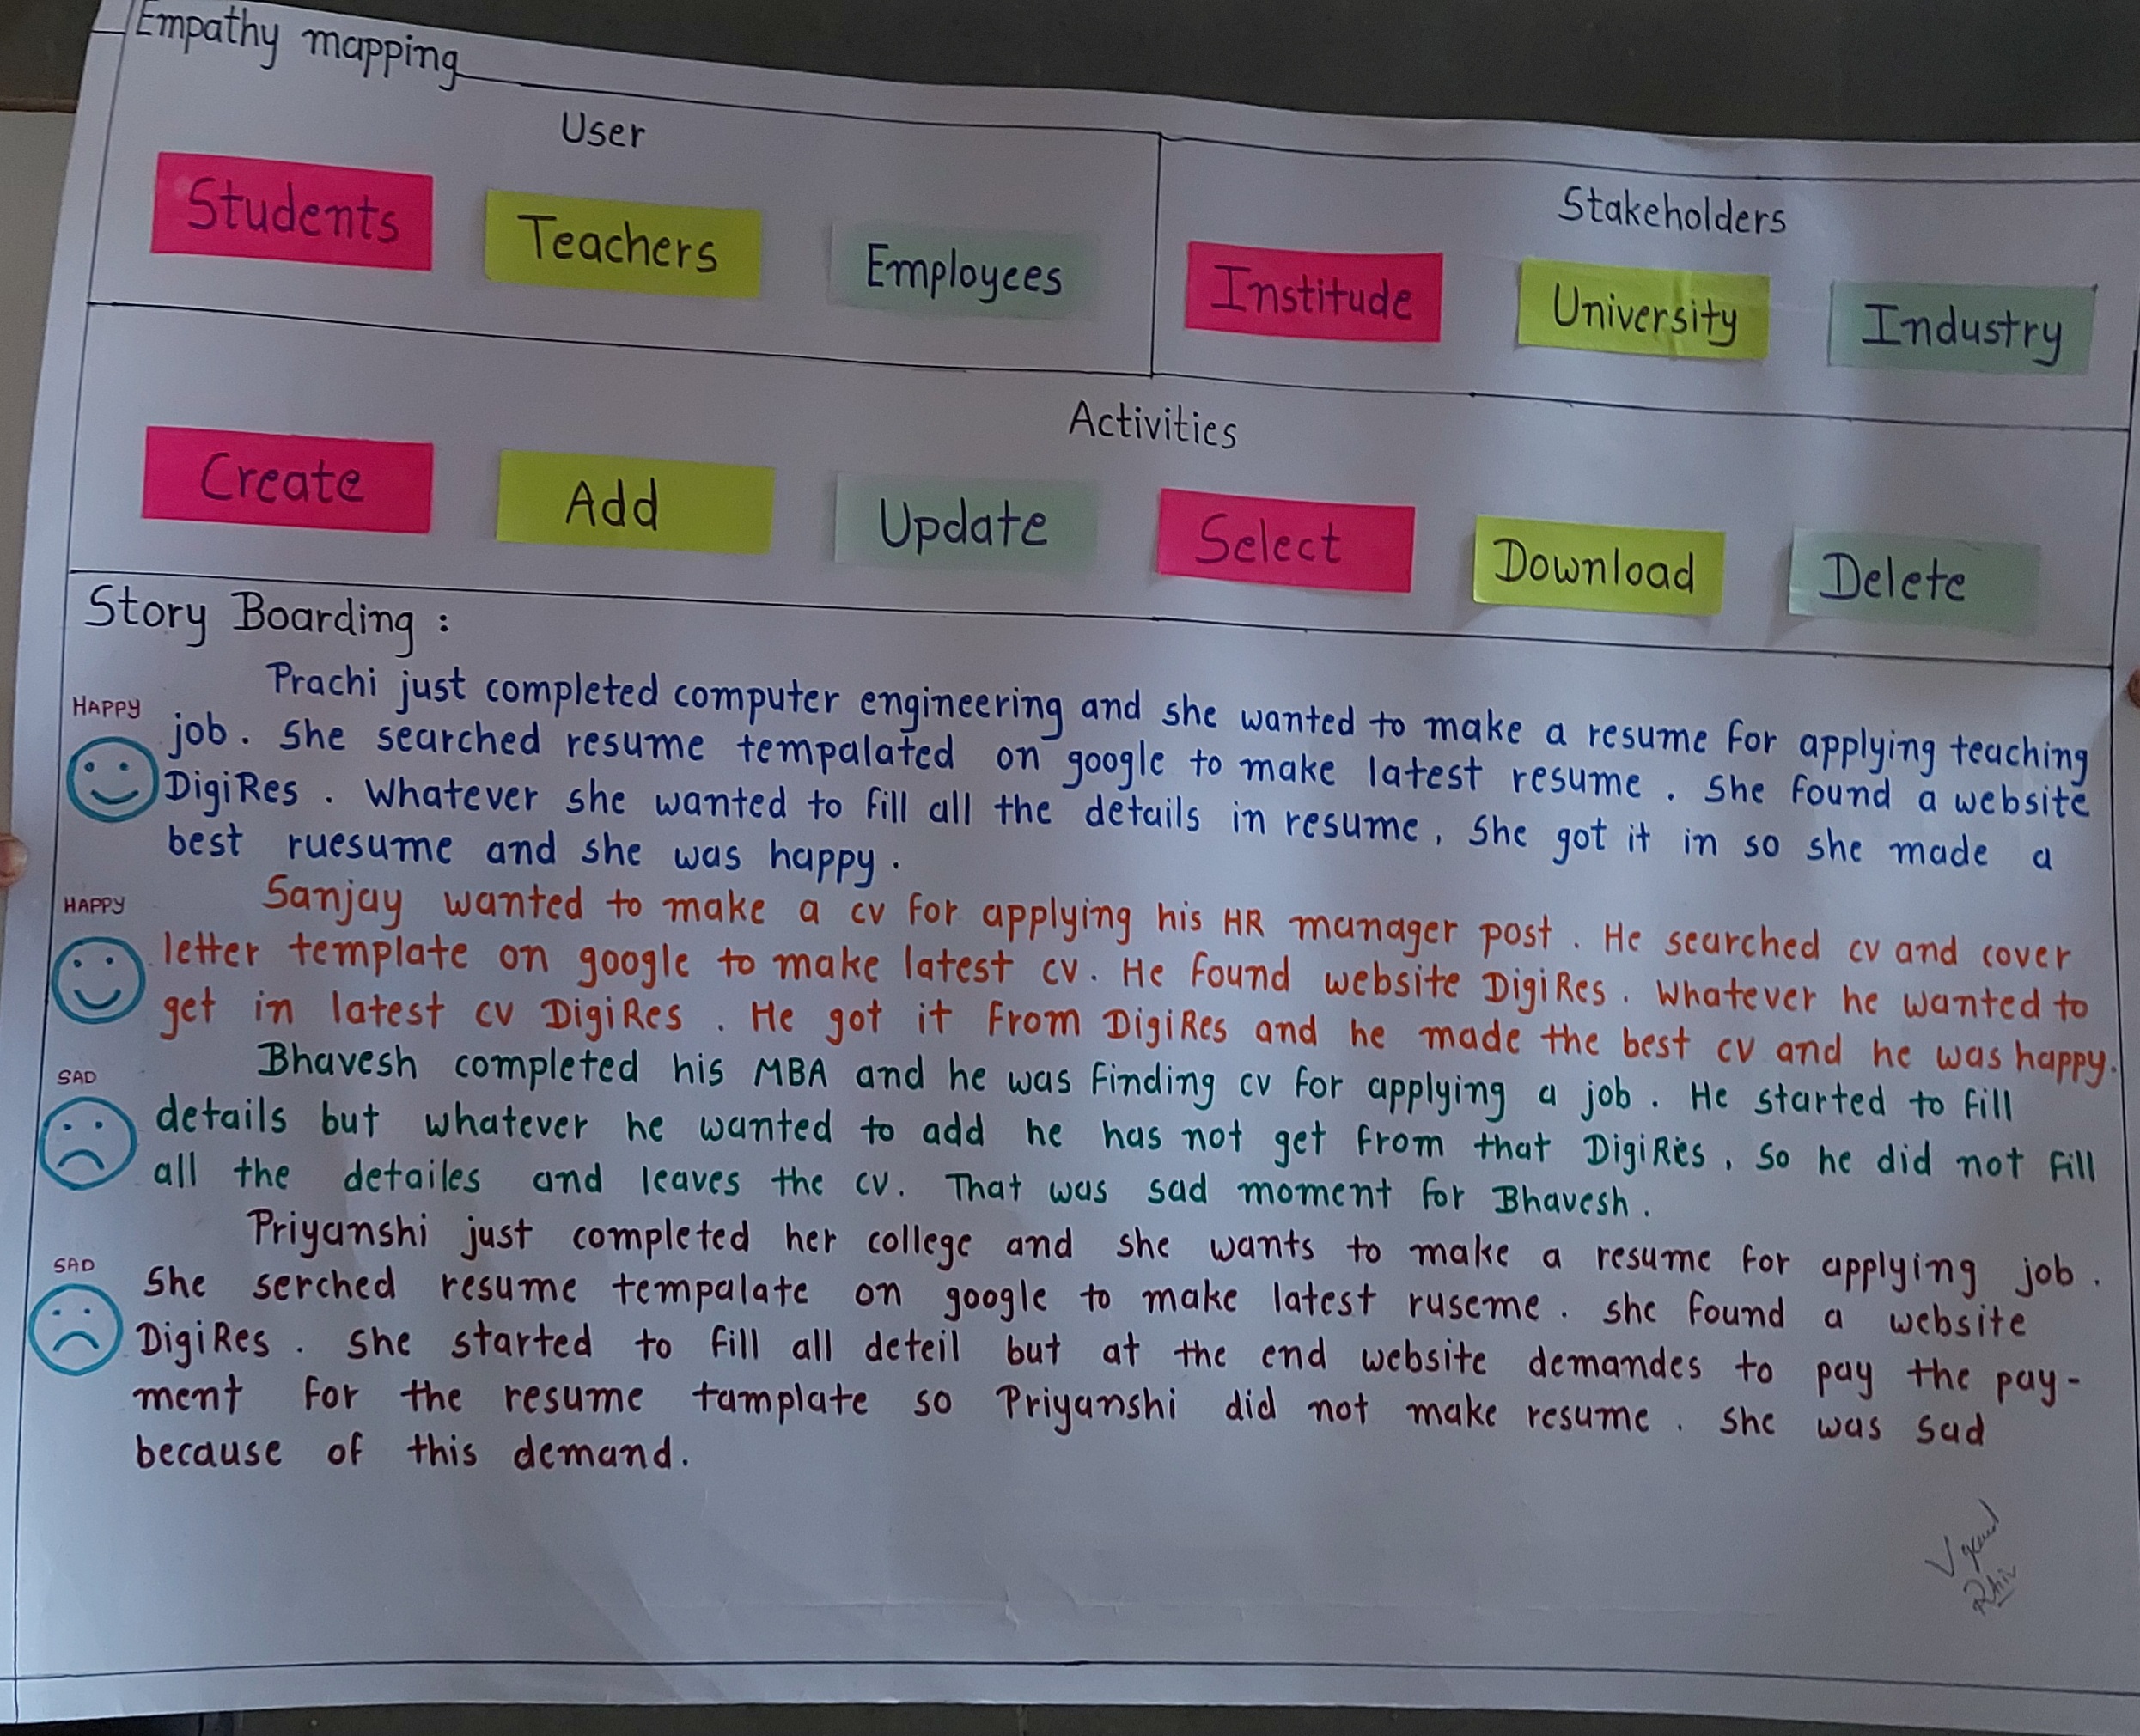 Empathy mapping
User
Students Teachers Employees
Stakeholders
Institude University Industry
Activities
Create Add Update Select Download Delete
Story Boarding :
HAPPY
Prachi just completed computer engineering and she wanted to make a resume for applying teaching
job. She searched resume tempalated on google to make latest resume. She found a website
DigiRes. Whatever she wanted to fill all the details in resume, She got it in so she made a
best ruesume and she was happy.
HAPPY
Sanjay wanted to make a cv for applying his HR manager post. He searched cv and cover
letter template on google to make latest cv. He found website DigiRes. Whatever he wanted to
get in latest cv DigiRes. He got it from DigiRes and he made the best cv and he was happy.
SAD
Bhavesh completed his MBA and he was finding cv for applying a job. He started to fill
details but whatever he wanted to add he has not get from that DigiRes, So he did not fill
all the detailes and leaves the cv. That was sad moment for Bhavesh.
SAD
Priyanshi just completed her college and she wants to make a resume for applying job.
She serched resume tempalate on google to make latest ruseme. she found a website
DigiRes. She started to fill all deteil but at the end website demandes to pay the pay-
ment for the resume tamplate so Priyanshi did not make resume. She was sad
because of this demand.